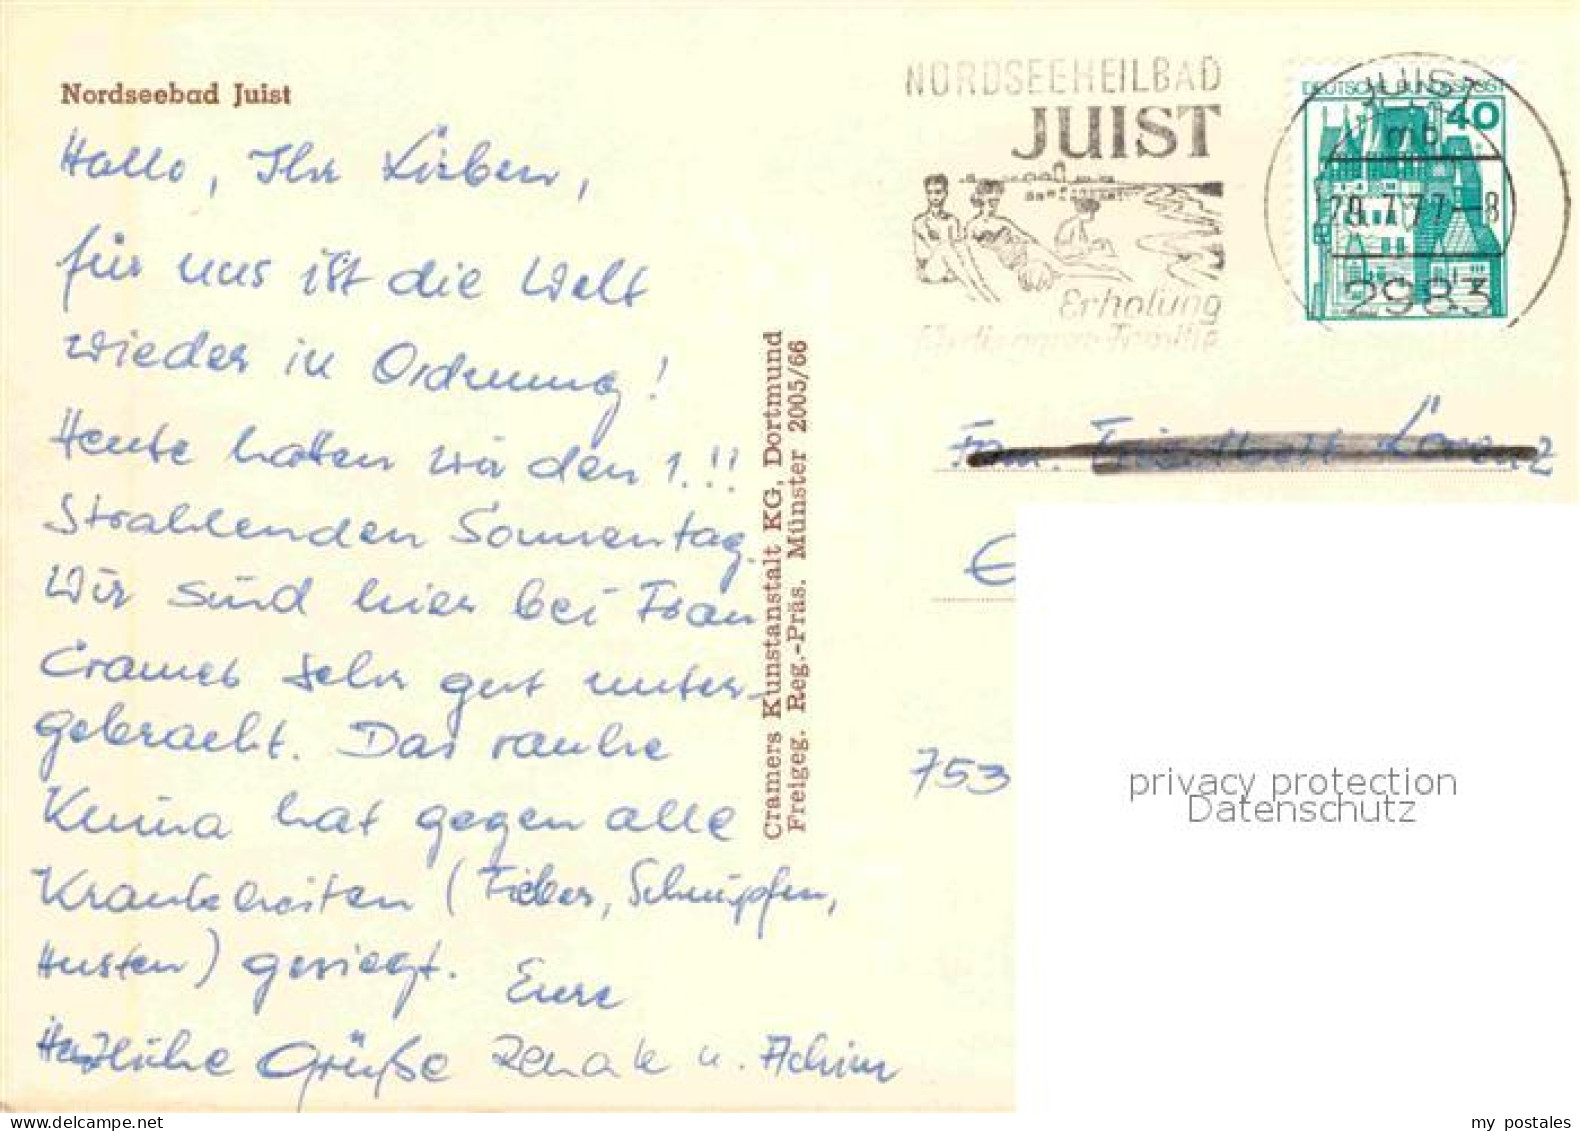 Nordseebad Juist
Hallo, Ihr Lieben,
für uns ist die Welt
wieder in Ordnung!
Heute hatten wir den 1.!!
Strahlenden Sonnentag.
Wir sind hier bei Frau
Cramer sehr gut unter-
gebracht. Das rauhe
Klima hat gegen alle
Krankheiten (Fieber, Schnupfen,
Husten) gesiegt.
Eure
Herzliche Grüße Renate u. Achim
Cramers Kunstanstalt KG, Dortmund
Freigeg. Reg.-Präs. Münster 2005/66
NORDSEEHEILBAD
JUIST
Erholung
Familie
DEUTSCHE BUNDESPOST
40
JUIST
mb
29.7.77-8
2983
Fam.
753
privacy protection
Datenschutz
my postales